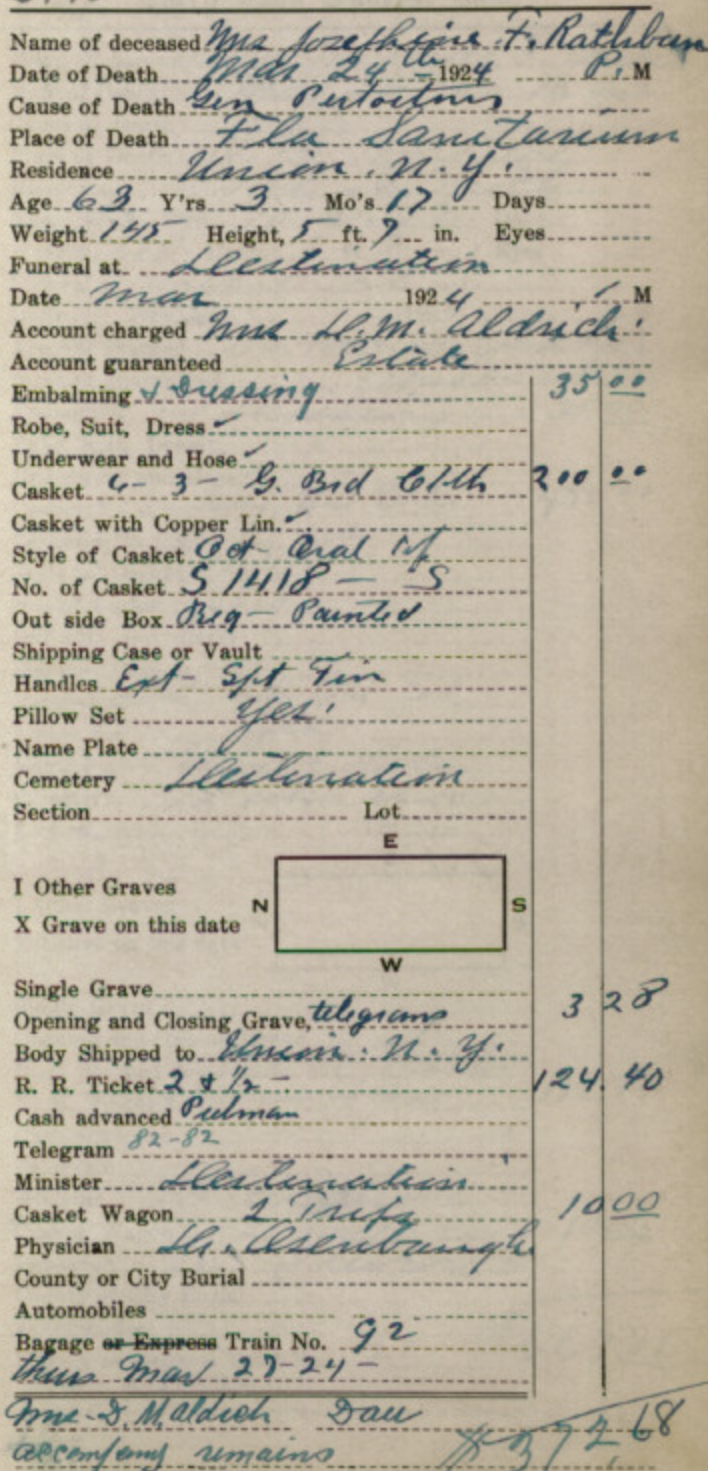 Name of deceased Mrs Josephine F. Rathbun
Date of Death Mar 24th 1924 P. M
Cause of Death Gen Peritoitnis
Place of Death Fla Sanitarium
Residence Union, N.Y.
Age 63 Y'rs 3 Mo's 17 Days
Weight 145 Height, 5 ft. 7 in. Eyes
Funeral at Destination
Date Mar 1924 M
Account charged Mrs D.M. Aldrich
Account guaranteed Estate
Embalming & Dressing 35 00
Robe, Suit, Dress ✓
Underwear and Hose ✓
Casket 6-3- G. Brd Clth 200 00
Casket with Copper Lin. ✓
Style of Casket Oct- Oval
No. of Casket S 1418 - S
Out side Box Reg- Painted
Shipping Case or Vault
Handles Ext- Spt Fin
Pillow Set Yes
Name Plate
Cemetery Destination
Section Lot
E
I Other Graves
N S
X Grave on this date
W
Single Grave
Opening and Closing Grave, telegrams 3 28
Body Shipped to Union. N.Y.
R. R. Ticket 2 & 1/2 - 124.40
Cash advanced Pulman
Telegram 82-82
Minister Destination
Casket Wagon 2 Trips 10 00
Physician Dr.
County or City Burial
Automobiles
Bagage or Express Train No. 92
thurs Mar 27-24-
Mrs-D. M. aldich Dau
accompany remains 372 68